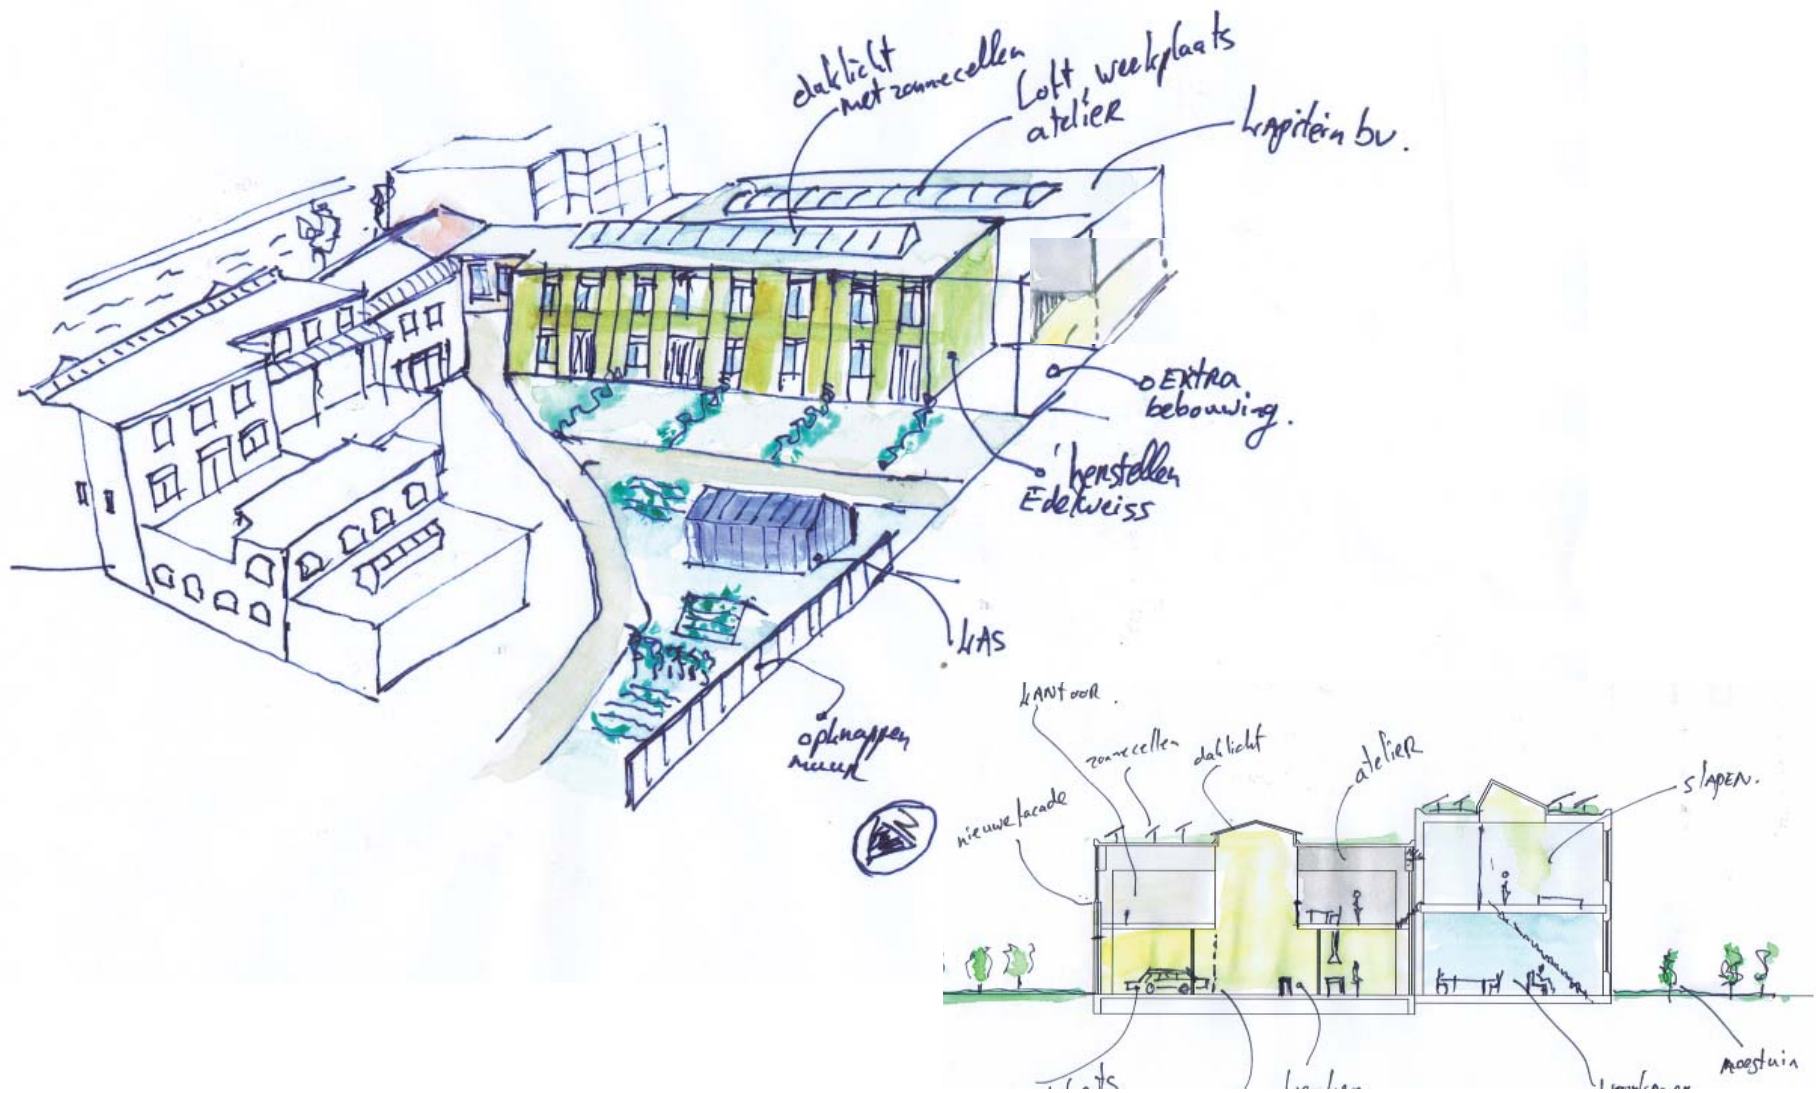 daklicht
met zonnecellen
Loft, werkplaats
atelier
Kapitein bv.
EXTRA
bebouwing.
herstellen
Edelweiss
KAS
opknappen
muur
KANtOOR.
zonnecellen
daklicht
atelier
slapen.
nieuwe facade
moestuin